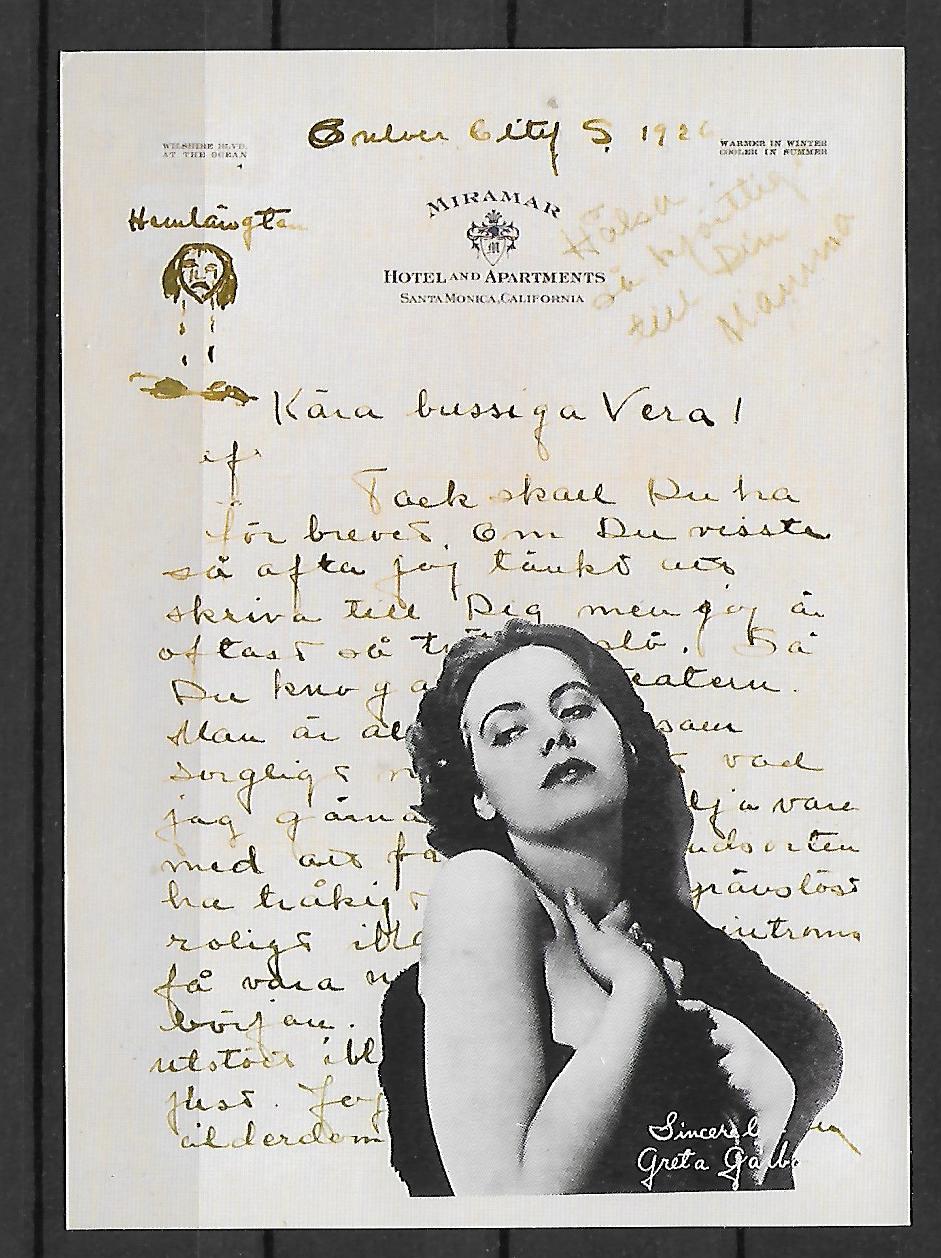 Culver City S. 1926
WILSHIRE BLVD.
AT THE OCEAN
WARMER IN WINTER
COOLER IN SUMMER
Hemlängtan
MIRAMAR
M
HOTEL AND APARTMENTS
SANTA MONICA, CALIFORNIA
Hälsa
så hjärtligt
till Din
Mamma
Kära bussiga Vera!
Tack skall Du ha
för brevet. Om Du visste
så ofta jag tänkt att
skriva till Dig men jag är
oftast så slö. Så
Du kno
Man är som
sorgligt vad
jag gärna vara
med att få
ha tråkigt gränslöst
roligt
få vara
början.
utstött
just. Jag
ålderdom
Sincerely
Greta Garbo